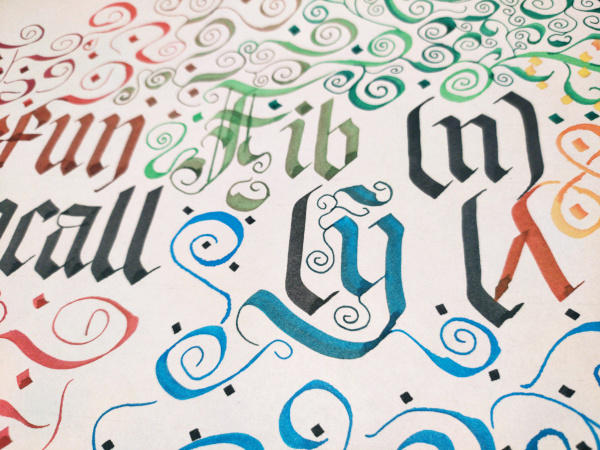 efun Fib (n)
ncall (Y (λ